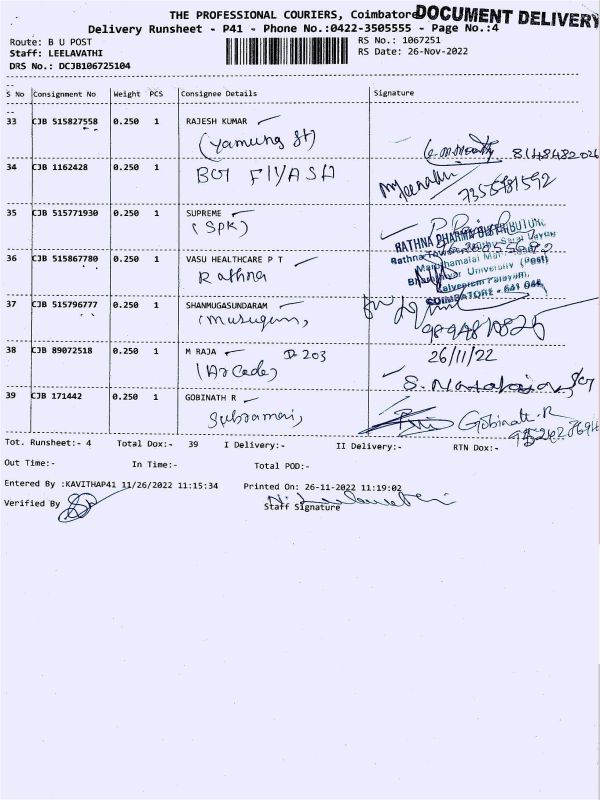 THE PROFESSIONAL COURIERS, Coimbatore
DOCUMENT DELIVERY
Delivery Runsheet - P41 - Phone No.:0422-3505555 - Page No.:4
Route: B U POST
RS No.: 1067251
Staff: LEELAVATHI
RS Date: 26-Nov-2022
DRS No.: DCJB106725104
S No Consignment No Weight PCS Consignee Details Signature
33 CJB 515827558 0.250 1 RAJESH KUMAR
(Yamuna St)
8148482026
34 CJB 1162428 0.250 1
7358981592
35 CJB 515771930 0.250 1 SUPREME
(SPK)
RATHNA PHARMA DISTRIBUTION
36 CJB 515867780 0.250 1 VASU HEALTHCARE P T
Rathna
Bharathiyar University (Post)
Kalveeram Palayam,
COIMBATORE - 641 046.
37 CJB 515796777 0.250 1 SHANMUGASUNDARAM
38 CJB 89072518 0.250 1 M RAJA D-203
(Arcade)
26/11/22
39 CJB 171442 0.250 1 GOBINATH R
Gobinath.R
Tot. Runsheet:- 4 Total Dox:- 39 I Delivery:- II Delivery:- RTN Dox:-
Out Time:- In Time:- Total POD:-
Entered By :KAVITHAP41 11/26/2022 11:15:34 Printed On: 26-11-2022 11:19:02
Verified By
Staff Signature